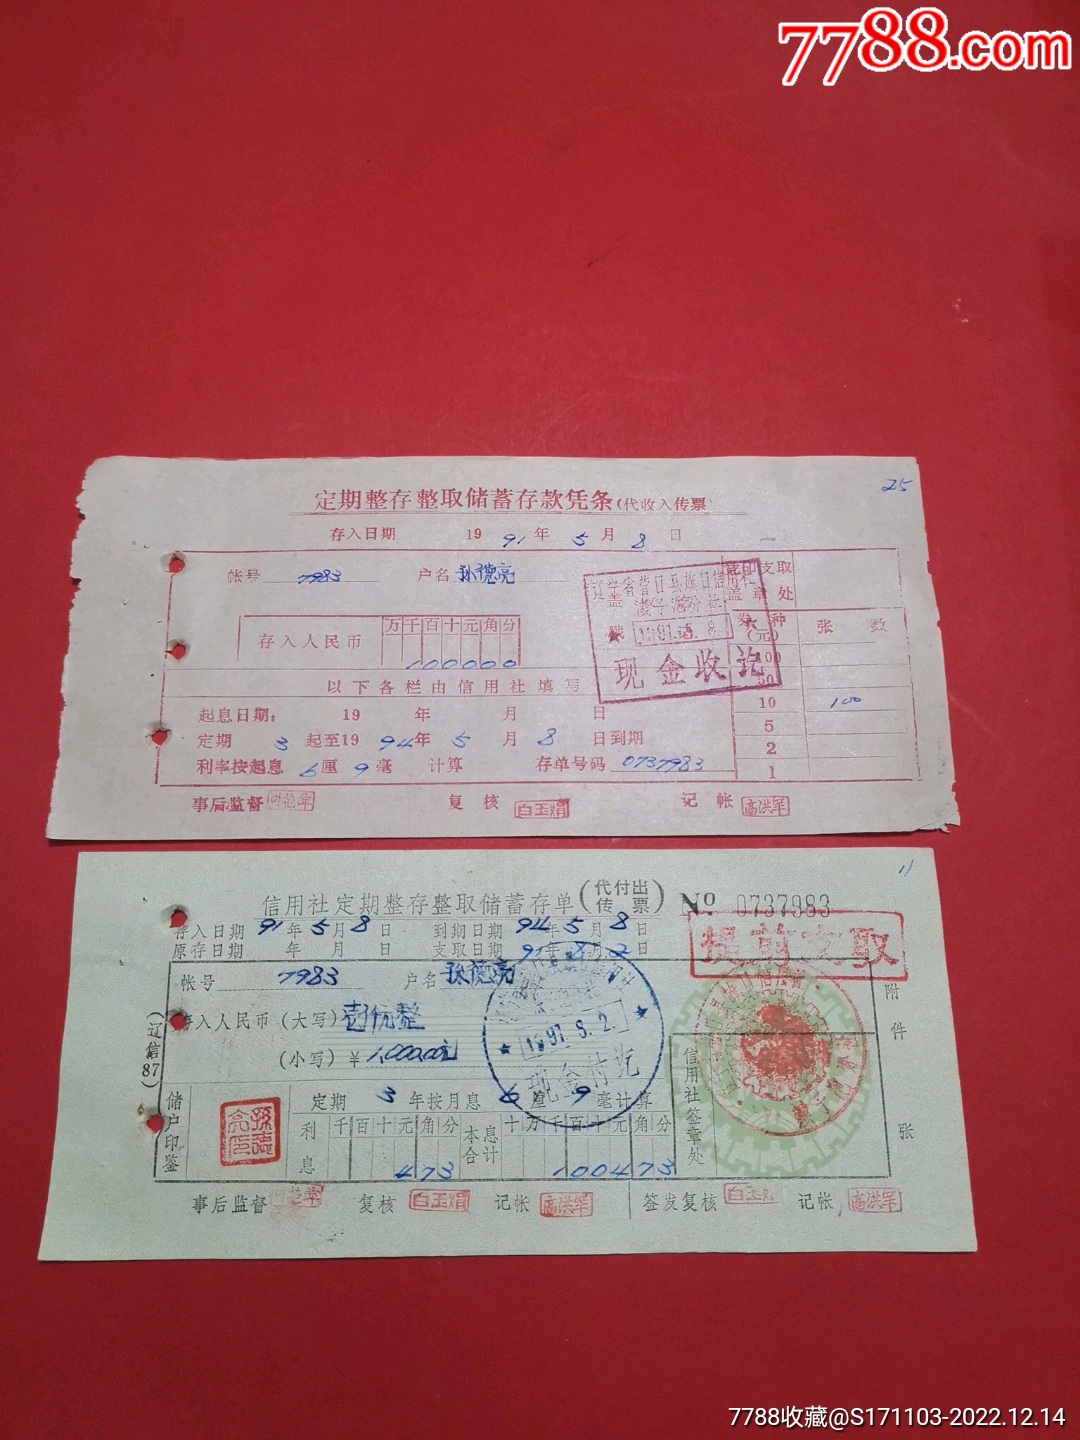 7788.com
25
定期整存整取储蓄存款凭条(代收入传票)
存入日期 1991年5月8日
帐号 7983 户名 孙德亮
盖章处
存入人民币 万千百十元角分
100000
(元) 张数
1991.5.8
现金收讫
以下各栏由信用社填写
100
50
起息日期: 19 年 月 日
10 100
定期 3 起至1994年5月8日到期
5
2
利率按起息 6厘9毫 计算 存单号码 0737983
1
事后监督 复核 白玉娟 记帐 高洪军
11
信用社定期整存整取储蓄存单(代付出传票) № 0737983
存入日期 91年5月8日 到期日期 94年5月8日
原存日期 年 月 日 支取日期 91年8月2日
提前支取
帐号 7983 户名 孙德亮
附件 张
存入人民币(大写) 壹仟元整
(小写) ¥ 1,000.00元
1991.8.2.
现金付讫
(辽信87)
信用社签章处
定期 3 年按月息 6厘9毫计算
储户印鉴
孙德亮印
利息 千百十元角分 本息合计 十万千百十元角分
473 100473
事后监督 复核 白玉娟 记帐 高洪军 签发复核 记帐 高洪军
7788收藏@S171103-2022.12.14